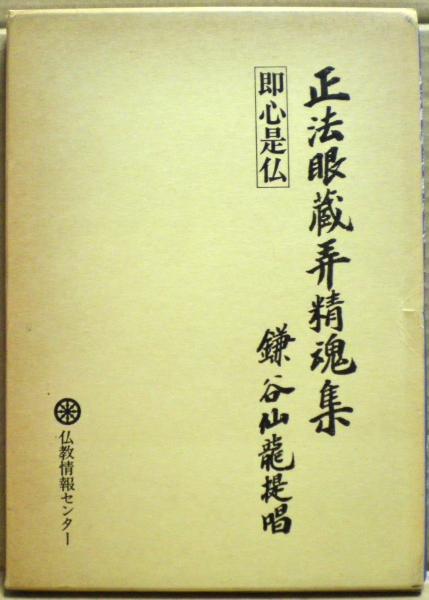 正法眼蔵弄精魂集
即心是仏
鎌谷仙龍提唱
仏教情報センター